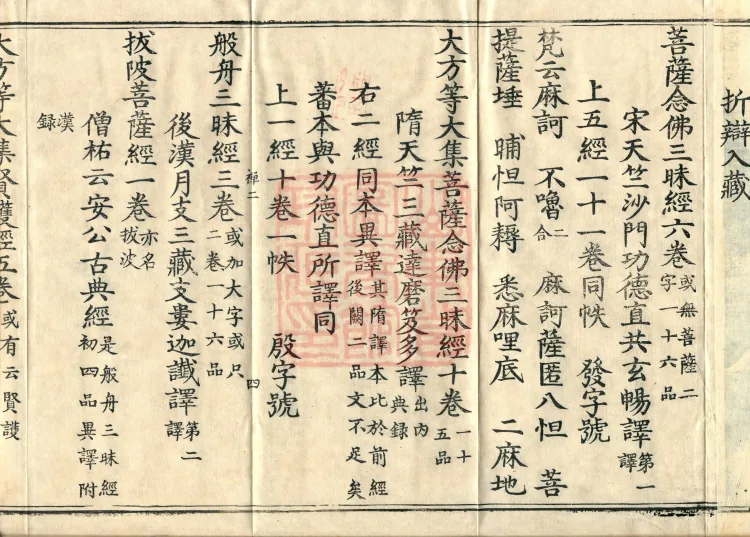 折辯入藏
菩薩念佛三昧經六卷 或無菩薩二字一十六品
宋天竺沙門功德直共玄暢譯 第一譯
上五經一十一卷同帙 發字號
梵云麻訶 不嚕 二合 麻訶薩匿八怛 菩
提薩埵 晡怛阿耨 悉麻哩底 二麻地
大方等大集菩薩念佛三昧經十卷 一十五品
隋天竺三藏達磨笈多譯 出內典錄
右二經同本異譯 其隋譯本比於前經後闕二品文不足矣
蕃本與功德直所譯同
上一經十卷一帙 殷字號
般舟三昧經三卷 或加大字或只二卷一十六品
後漢月支三藏支婁迦讖譯 第二譯
拔陂菩薩經一卷 亦名拔波
僧祐云安公古典經 是般舟三昧經初四品異譯附
漢錄
大方等大集賢護經五卷 或有云賢護